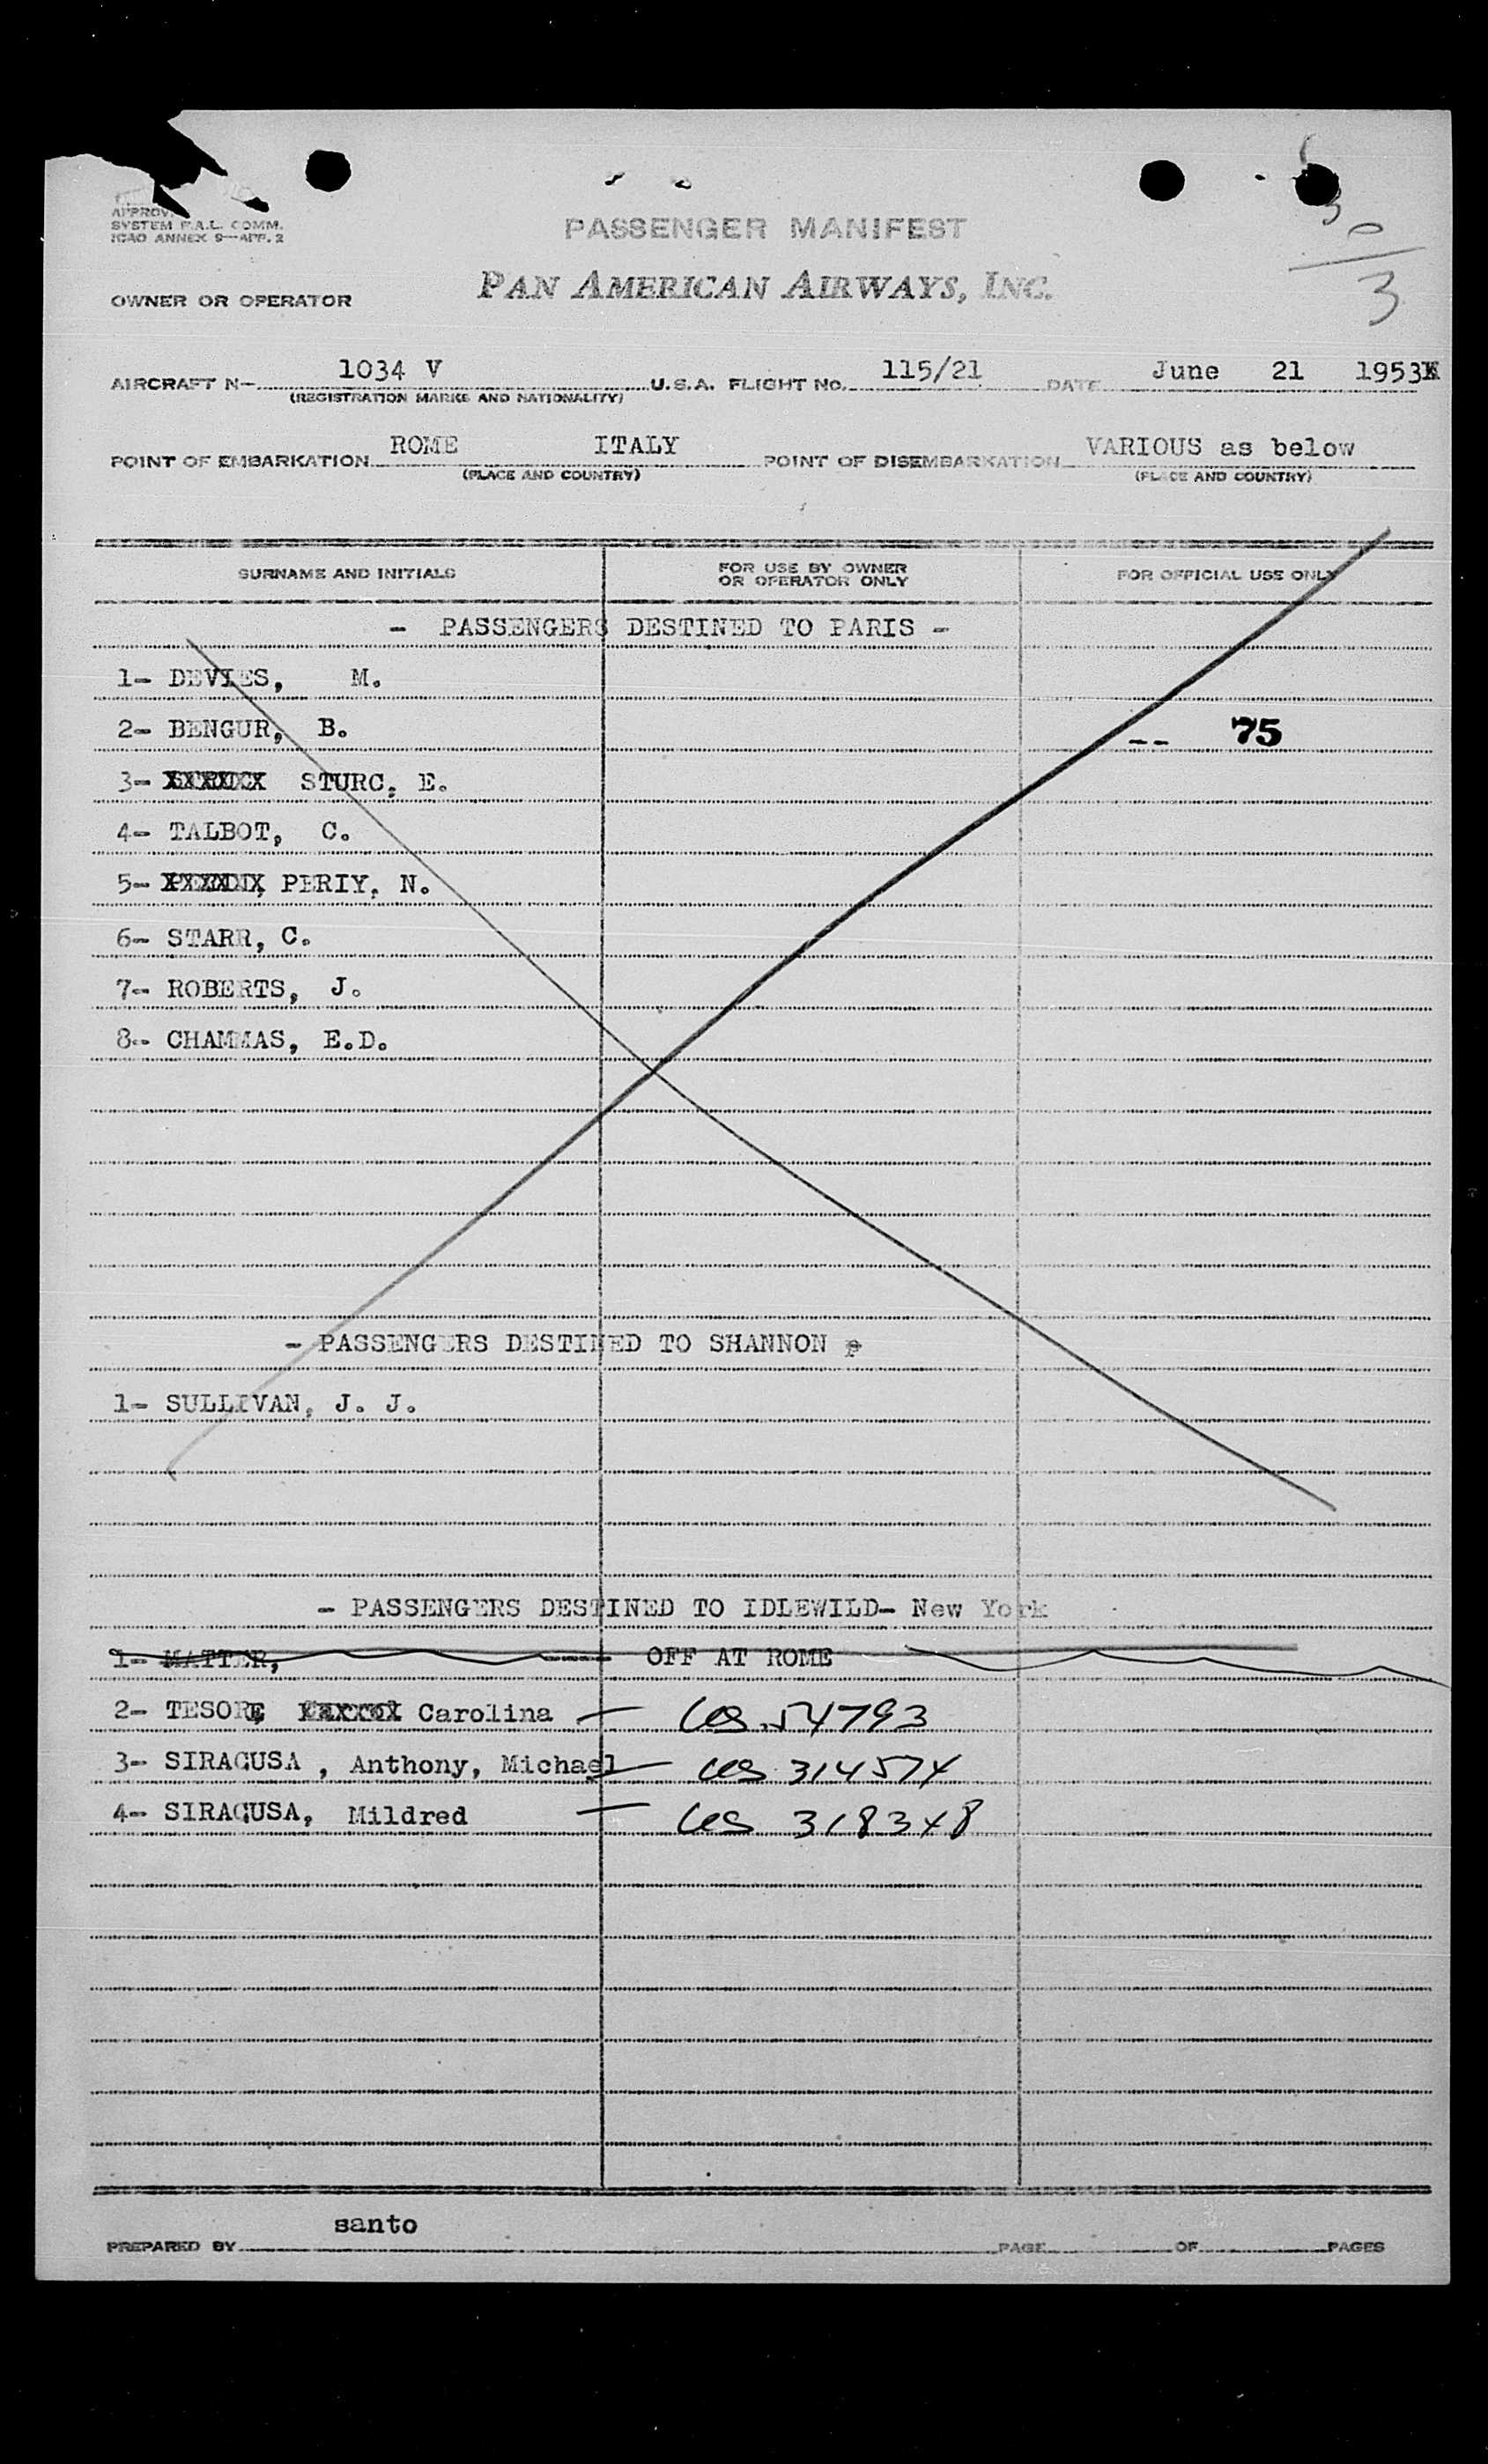 APPROV.
SYSTEM F.A.L. COMM.
ICAO ANNEX 9—APP. 2
PASSENGER MANIFEST
30/3
OWNER OR OPERATOR PAN AMERICAN AIRWAYS, INC.
AIRCRAFT N— 1034 V U.S.A. FLIGHT No. 115/21 DATE June 21 1953
(REGISTRATION MARKS AND NATIONALITY)
POINT OF EMBARKATION ROME ITALY POINT OF DISEMBARKATION VARIOUS as below
(PLACE AND COUNTRY) (PLACE AND COUNTRY)
SURNAME AND INITIALS FOR USE BY OWNER OR OPERATOR ONLY FOR OFFICIAL USE ONLY
- PASSENGERS DESTINED TO PARIS -
1- DEVIES, M.
2- BENGUR, B. -- 75
3- STURC, E.
4- TALBOT, C.
5- PERIY, N.
6- STARR, C.
7- ROBERTS, J.
8- CHAMMAS, E.D.
- PASSENGERS DESTINED TO SHANNON
1- SULLIVAN, J. J.
- PASSENGERS DESTINED TO IDLEWILD- New York
1- MATTER, ---- OFF AT ROME
2- TESORE, Carolina — 54793
3- SIRAGUSA , Anthony, Michael —
4- SIRAGUSA, Mildred —
santo
PREPARED BY PAGE OF PAGES